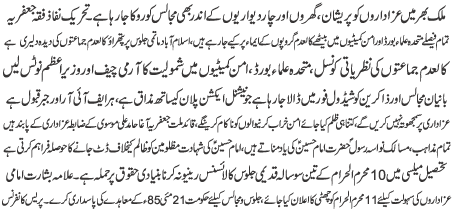 ملک بھر میں عزاداروں کو پریشان، گھروں اور چار دیواریوں کے اندر بھی مجالس کو روکا جا رہا ہے۔ تحریک نفاذ فقہ جعفریہ
تمام فیصلے متحدہ علماء بورڈ، امن کمیٹیوں میں بیٹھے کالعدم گروپوں کے ایماء پر کیے جا رہے ہیں، اسلام آباد ماتمی جلوس پر پتھراؤ کالعدم جماعتوں کی دیدہ دلیری ہے
کالعدم جماعتوں کی نظریاتی کونسل، متحدہ علماء بورڈ، امن کمیٹیوں میں شمولیت کا آرمی چیف اور وزیر اعظم نوٹس لیں
بانیان مجالس اور ذاکرین کو شیڈول فور میں ڈالا جا رہا ہے جو نیشنل ایکشن پلان کیساتھ مذاق ہے، ہر ایف آئی آر اور جبر قبول ہے
عزاداری پر سمجھوتہ نہیں کریں گے، کتنا ہی ظلم کیا جائے امن خراب کرنیوالوں کو ناکام کرینگے، قائد ملت جعفریہ آغا حامد علی موسوی کے ضابطہ عزاداری کے پابند ہیں
تمام مذاہب، مسالک نواسہ رسولؐ حضرت امام حسینؑ کی یاد مناتے ہیں، امام حسینؑ کی شہادت مظلومین کو ظالم کیخلاف ڈٹ جانے کا حوصلہ فراہم کرتی ہے
تحصیل میلسی میں 10 محرم الحرام کے تین سو سالہ قدیمی جلوس کا لائسنس رینیو نہ کرنا بنیادی حقوق پر حملہ ہے۔ علامہ بشارت امامی
عزاداروں کی سہولت کیلئے 11 محرم الحرام کو چھٹی کا اعلان کیا جائے، جلوس و مجالس کیلئے حکومت 21 مئی 85ء کے معاہدے کی پاسداری کرے۔ پریس کانفرنس